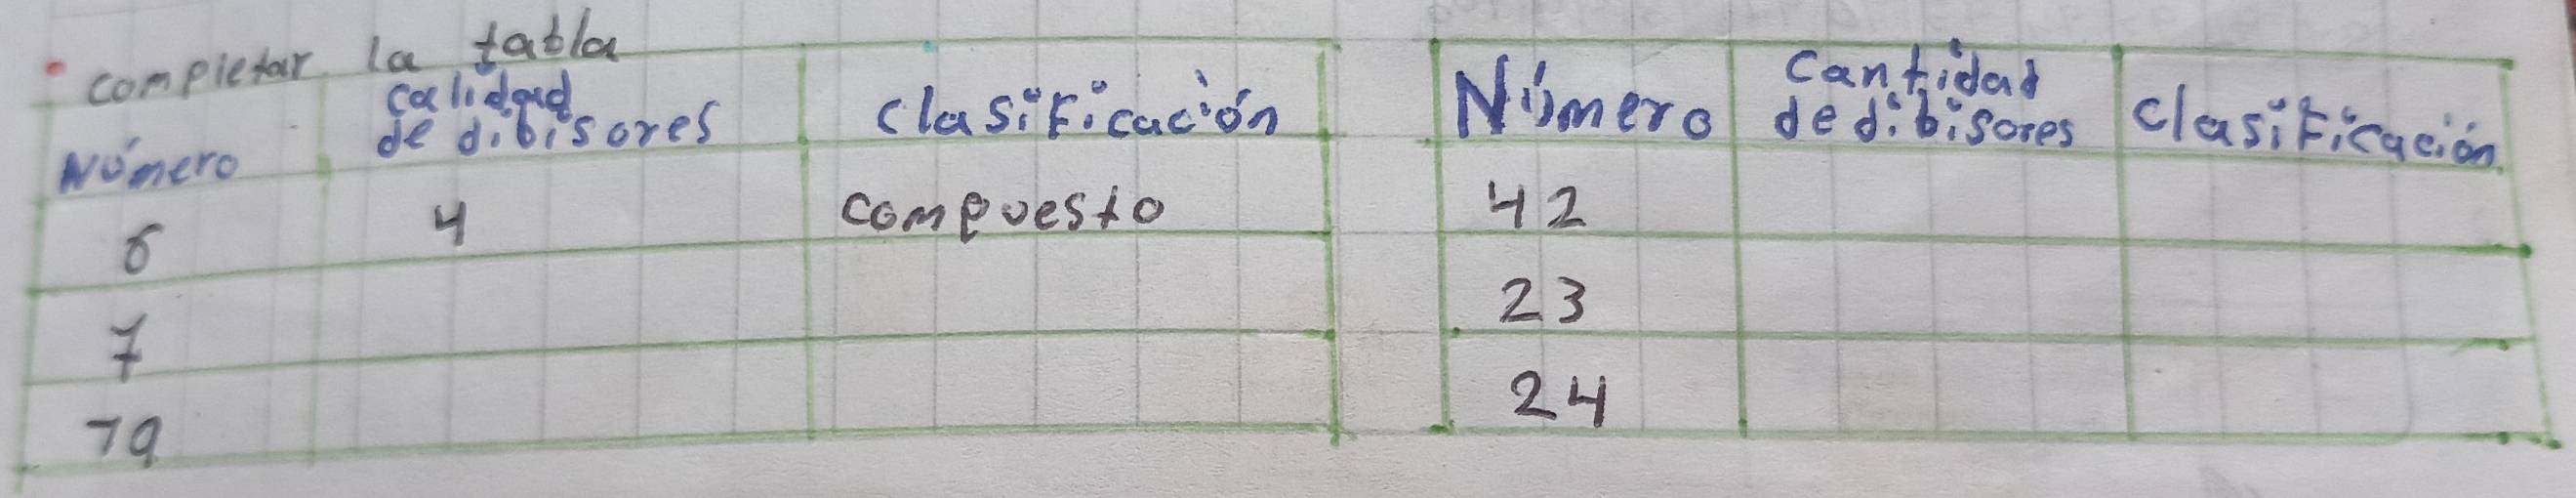 • completar la tabla
Número calidad de dibisores clasificación
6 4 compuesto
7
79
Número cantidad de dibisores clasificación
42
23
24